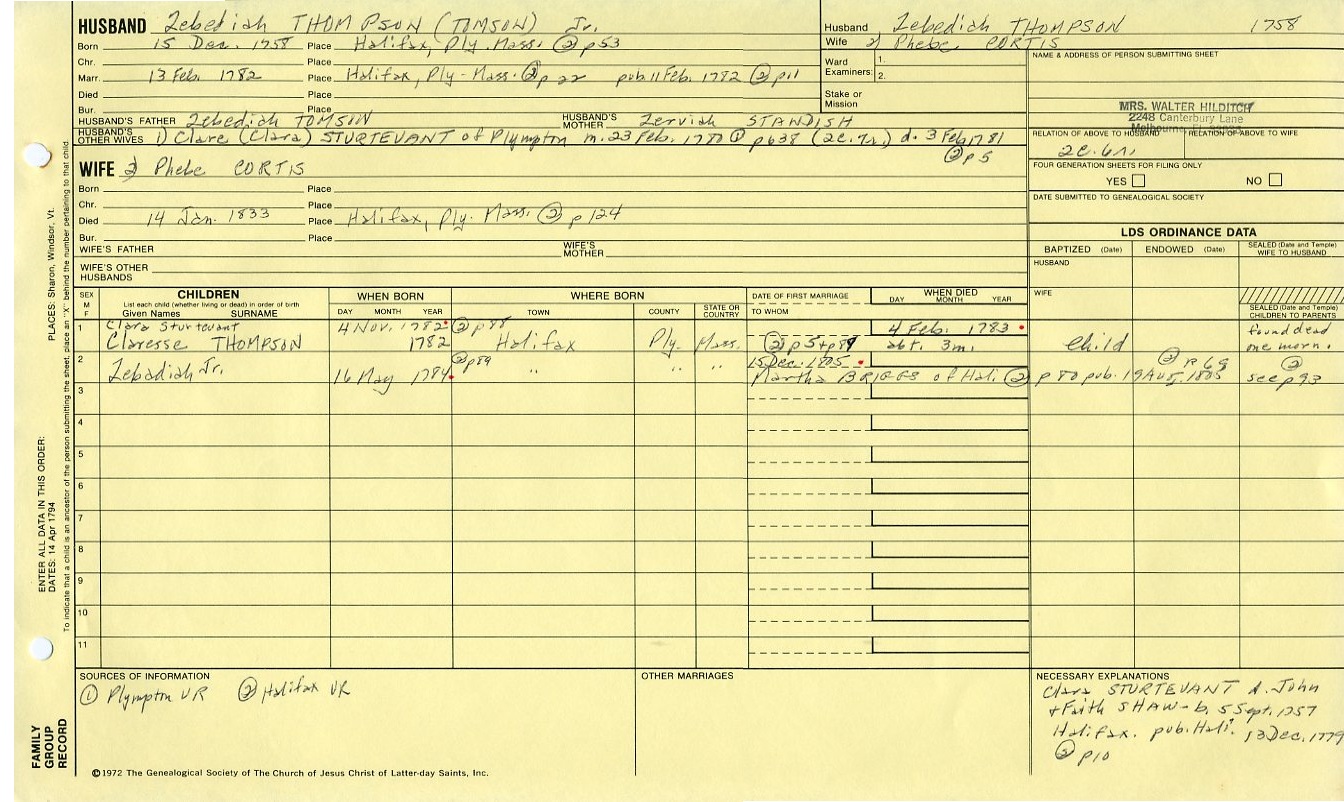 HUSBAND Zebediah THOMPSON (TOMSON) Jr.
Born 15 Dec. 1758 Place Halifax, Ply. Mass. ② p53
Chr. Place
Marr. 13 Feb. 1782 Place Halifax, Ply-Mass. ② p 22 pub. 11 Feb. 1782 ② p11
Died Place
Bur. Place
HUSBAND'S FATHER Zebediah TOMSON HUSBAND'S MOTHER Zerviah STANDISH
HUSBAND'S OTHER WIVES 1) Clare (Clara) STURTEVANT of Plympton m. 23 Feb. 1780 ① p638 (2c. 7r.) d. 3 Feb 1781
② p 5
Husband Zebediah THOMPSON 1758
Wife 2) Phebe CORTIS
Ward Examiners: 1.
2.
Stake or Mission
NAME & ADDRESS OF PERSON SUBMITTING SHEET
MRS. WALTER HILDITCH
2248 Canterbury Lane
RELATION OF ABOVE TO HUSBAND RELATION OF ABOVE TO WIFE
2c. 6r.
FOUR GENERATION SHEETS FOR FILING ONLY
YES NO
DATE SUBMITTED TO GENEALOGICAL SOCIETY
WIFE 2) Phebe CORTIS
Born Place
Chr. Place
Died 14 Jan. 1833 Place Halifax, Ply. Mass. ② p 124
Bur. Place
WIFE'S FATHER WIFE'S MOTHER
WIFE'S OTHER HUSBANDS
LDS ORDINANCE DATA
BAPTIZED (Date) ENDOWED (Date) SEALED (Date and Temple) WIFE TO HUSBAND
HUSBAND
WIFE
SEALED (Date and Temple) CHILDREN TO PARENTS
SEX M F
CHILDREN
List each child (whether living or dead) in order of birth
Given Names SURNAME
WHEN BORN
DAY MONTH YEAR
WHERE BORN
TOWN COUNTY STATE OR COUNTRY
DATE OF FIRST MARRIAGE
TO WHOM
WHEN DIED
DAY MONTH YEAR
1 Clara Sturtevant 4 Nov. 1782 ② p88 4 Feb. 1783 found dead
Claresse THOMPSON 1782 Halifax Ply. Mass. ② p 5 + p89 abt. 3m. Child one morn.
2 ② p89 15 Dec. 1805 ② p. 69 ②
Zebadiah Jr. 16 May 1784 " " " Martha BRIGGS of Hali. ② p 80 pub. 19 Aug. 1805 see p93
3
4
5
6
7
8
9
10
11
SOURCES OF INFORMATION
① Plympton VR ② Halifax VR
OTHER MARRIAGES
NECESSARY EXPLANATIONS
Clara STURTEVANT d. John
+ Faith SHAW - b. 5 Sept. 1757
Halifax. pub. Hali. 13 Dec. 1779
② p10
©1972 The Genealogical Society of The Church of Jesus Christ of Latter-day Saints, Inc.
FAMILY GROUP RECORD
ENTER ALL DATA IN THIS ORDER:
DATES: 14 Apr 1794 PLACES: Sharon, Windsor, Vt.
To indicate that a child is an ancestor of the person submitting the sheet, place an "X" behind the number pertaining to that child.